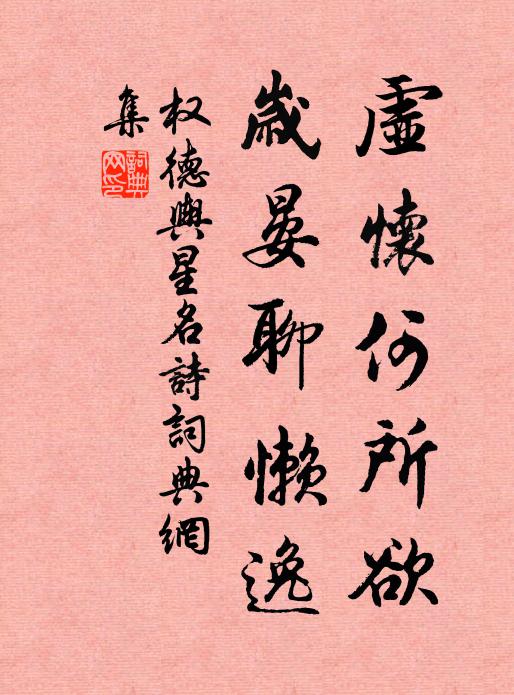 虛懷何所欲
歲晏聊懶逸
权德輿星名詩詞典網
集
詞典网印